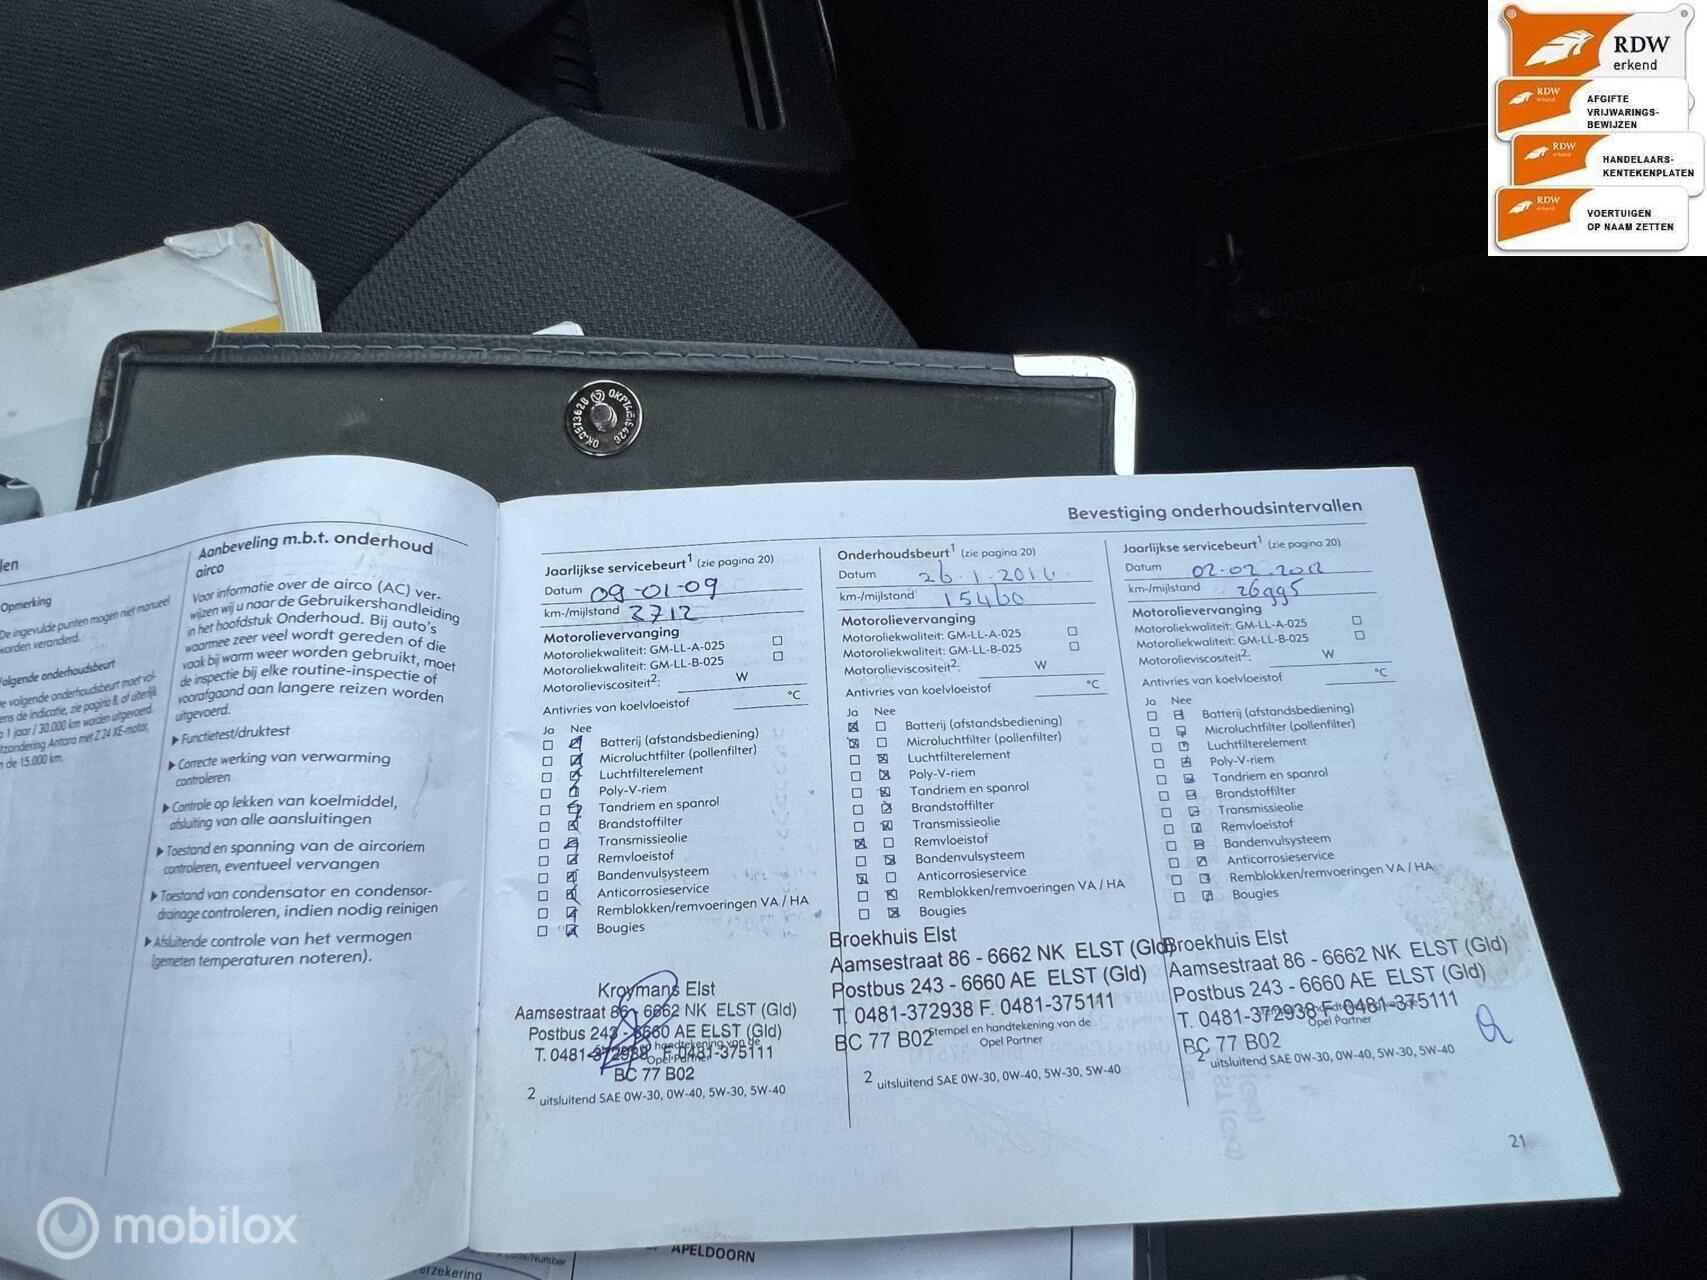 RDW
erkend
RDW
erkend
AFGIFTE
VRIJWARINGS-
BEWIJZEN
RDW
erkend
HANDELAARS-
KENTEKENPLATEN
RDW
erkend
VOERTUIGEN
OP NAAM ZETTEN
len
Opmerking
De ingevulde punten mogen niet manueel
worden veranderd.
olgende onderhoudsbeurt
volgende onderhoudsbeurt moet vol-
ens de indicatie, zie pagina 8, of uiterlijk
1 jaar / 30.000 km worden uitgevoerd.
tzondering Antara met Z 24 XE-motor,
de 15.000 km.
Aanbeveling m.b.t. onderhoud
airco
Voor informatie over de airco (AC) ver-
wijzen wij u naar de Gebruikershandleiding
in het hoofdstuk Onderhoud. Bij auto's
waarmee zeer veel wordt gereden of die
vaak bij warm weer worden gebruikt, moet
de inspectie bij elke routine-inspectie of
voorafgaand aan langere reizen worden
uitgevoerd.
Functietest/druktest
Correcte werking van verwarming
controleren
Controle op lekken van koelmiddel,
afsluiting van alle aansluitingen
Toestand en spanning van de aircoriem
controleren, eventueel vervangen
Toestand van condensator en condensor-
drainage controleren, indien nodig reinigen
Afsluitende controle van het vermogen
(gemeten temperaturen noteren).
Bevestiging onderhoudsintervallen
Jaarlijkse servicebeurt1 (zie pagina 20)
Datum 09-01-09
km-/mijlstand 3712
Motorolievervanging
Motoroliekwaliteit: GM-LL-A-025
Motoroliekwaliteit: GM-LL-B-025
Motorolieviscositeit2: W
Antivries van koelvloeistof °C
Ja Nee
Batterij (afstandsbediening)
Microluchtfilter (pollenfilter)
Luchtfilterelement
Poly-V-riem
Tandriem en spanrol
Brandstoffilter
Transmissieolie
Remvloeistof
Bandenvulsysteem
Anticorrosieservice
Remblokken/remvoeringen VA / HA
Bougies
Kroymans Elst
Aamsestraat 86 - 6662 NK ELST (Gld)
Postbus 243 - 6660 AE ELST (Gld)
T. 0481-372938 F. 0481-375111
handtekening van de
Opel Partner
BC 77 B02
2 uitsluitend SAE 0W-30, 0W-40, 5W-30, 5W-40
Onderhoudsbeurt1 (zie pagina 20)
Datum 26.1.
km-/mijlstand 15460
Motorolievervanging
Motoroliekwaliteit: GM-LL-A-025
Motoroliekwaliteit: GM-LL-B-025
Motorolieviscositeit2: W
Antivries van koelvloeistof °C
Ja Nee
Batterij (afstandsbediening)
Microluchtfilter (pollenfilter)
Luchtfilterelement
Poly-V-riem
Tandriem en spanrol
Brandstoffilter
Transmissieolie
Remvloeistof
Bandenvulsysteem
Anticorrosieservice
Remblokken/remvoeringen VA / HA
Bougies
Broekhuis Elst
Aamsestraat 86 - 6662 NK ELST (Gld)
Postbus 243 - 6660 AE ELST (Gld)
T. 0481-372938 F. 0481-375111
BC 77 B02
Stempel en handtekening van de
Opel Partner
2 uitsluitend SAE 0W-30, 0W-40, 5W-30, 5W-40
Jaarlijkse servicebeurt1 (zie pagina 20)
Datum 02-02-2012
km-/mijlstand 26995
Motorolievervanging
Motoroliekwaliteit: GM-LL-A-025
Motoroliekwaliteit: GM-LL-B-025
Motorolieviscositeit2: W
Antivries van koelvloeistof °C
Ja Nee
Batterij (afstandsbediening)
Microluchtfilter (pollenfilter)
Luchtfilterelement
Poly-V-riem
Tandriem en spanrol
Brandstoffilter
Transmissieolie
Remvloeistof
Bandenvulsysteem
Anticorrosieservice
Remblokken/remvoeringen VA / HA
Bougies
Broekhuis Elst
Aamsestraat 86 - 6662 NK ELST (Gld)
Postbus 243 - 6660 AE ELST (Gld)
T. 0481-372938 F. 0481-375111
Opel Partner
BC 77 B02
2 uitsluitend SAE 0W-30, 0W-40, 5W-30, 5W-40
21
mobilox
APELDOORN
erzekering